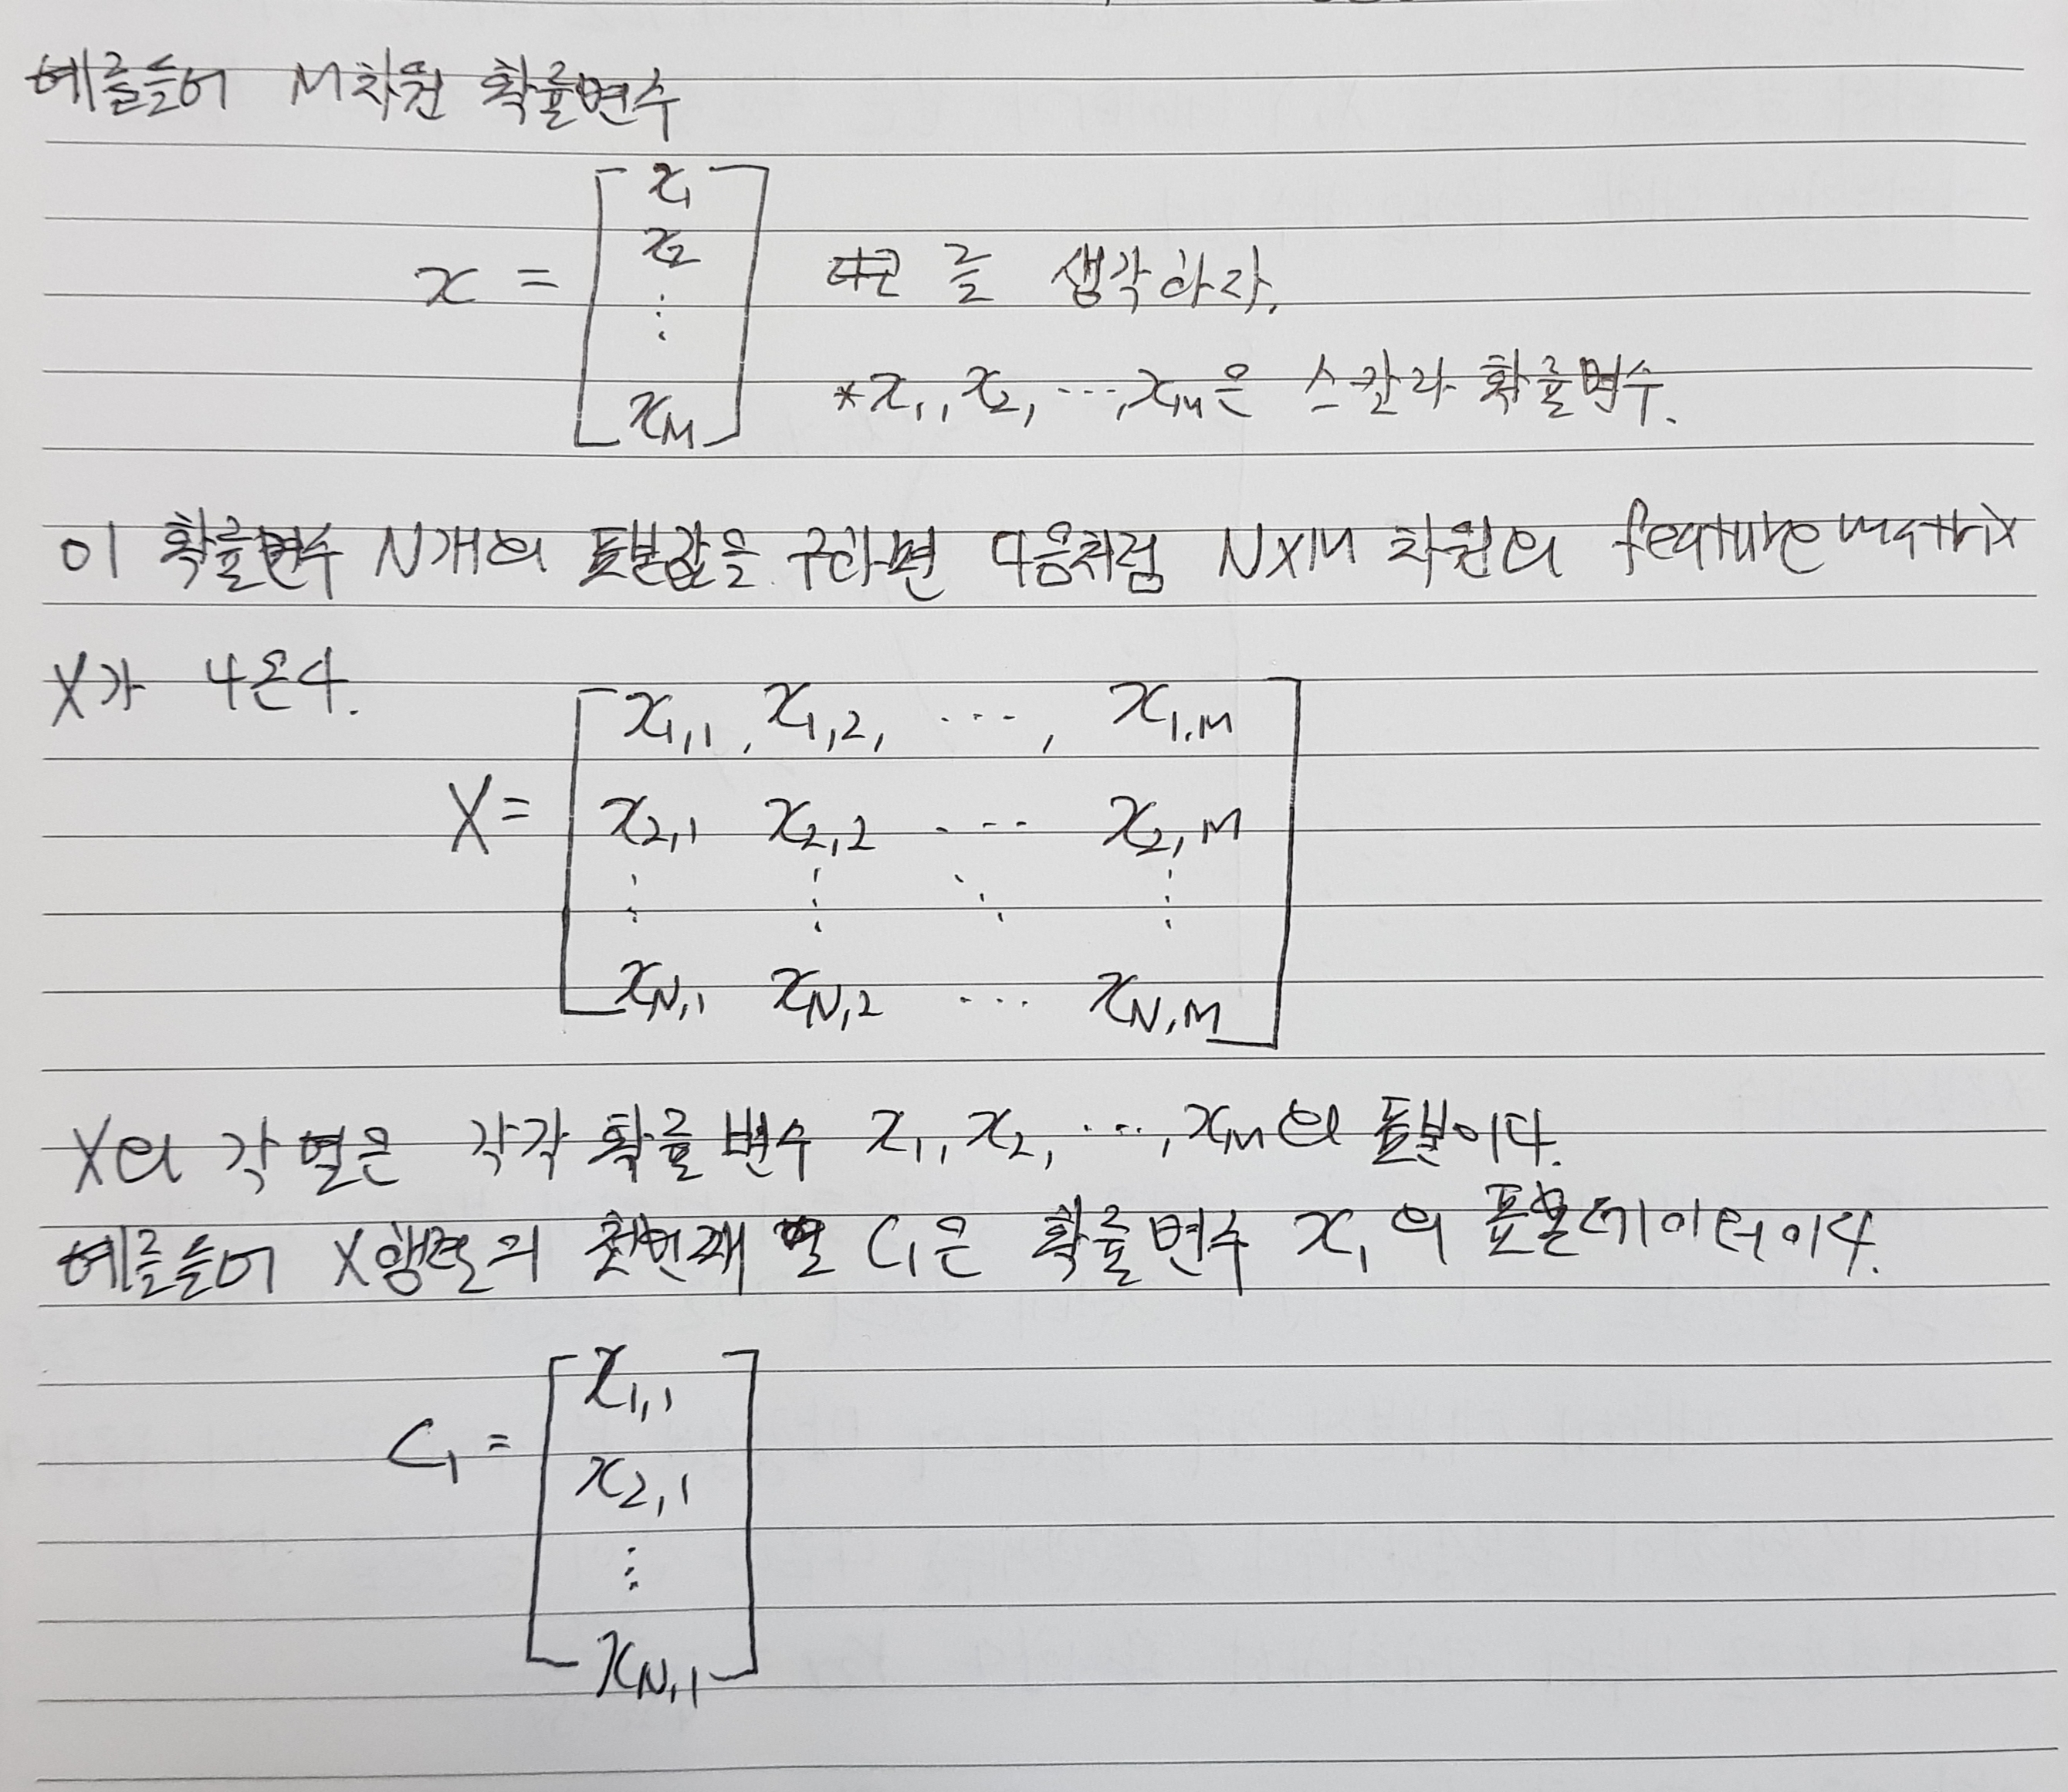 예를들어 M차원 확률변수
x = [ x₁ x₂ ⋮ x_M ] 를 생각하라.
*x₁, x₂, ⋯, x_M은 스칼라 확률변수.
이 확률변수 N개의 표본값을 구하면 다음처럼 N×M 차원의 feature matrix
X가 나온다.
x₁,₁, x₁,₂, ⋯, x₁,M
X = x₂,₁ x₂,₂ ⋯ x₂,M
⋮ ⋮ ⋱ ⋮
x_N,₁ x_N,₂ ⋯ x_N,M
X의 각 열은 각각 확률 변수 x₁, x₂, ⋯, x_M의 표본이다.
예를들어 X행렬의 첫번째 열 C₁은 확률변수 x₁의 표본데이터이다.
C₁ = [ x₁,₁ x₂,₁ ⋮ x_N,₁ ]